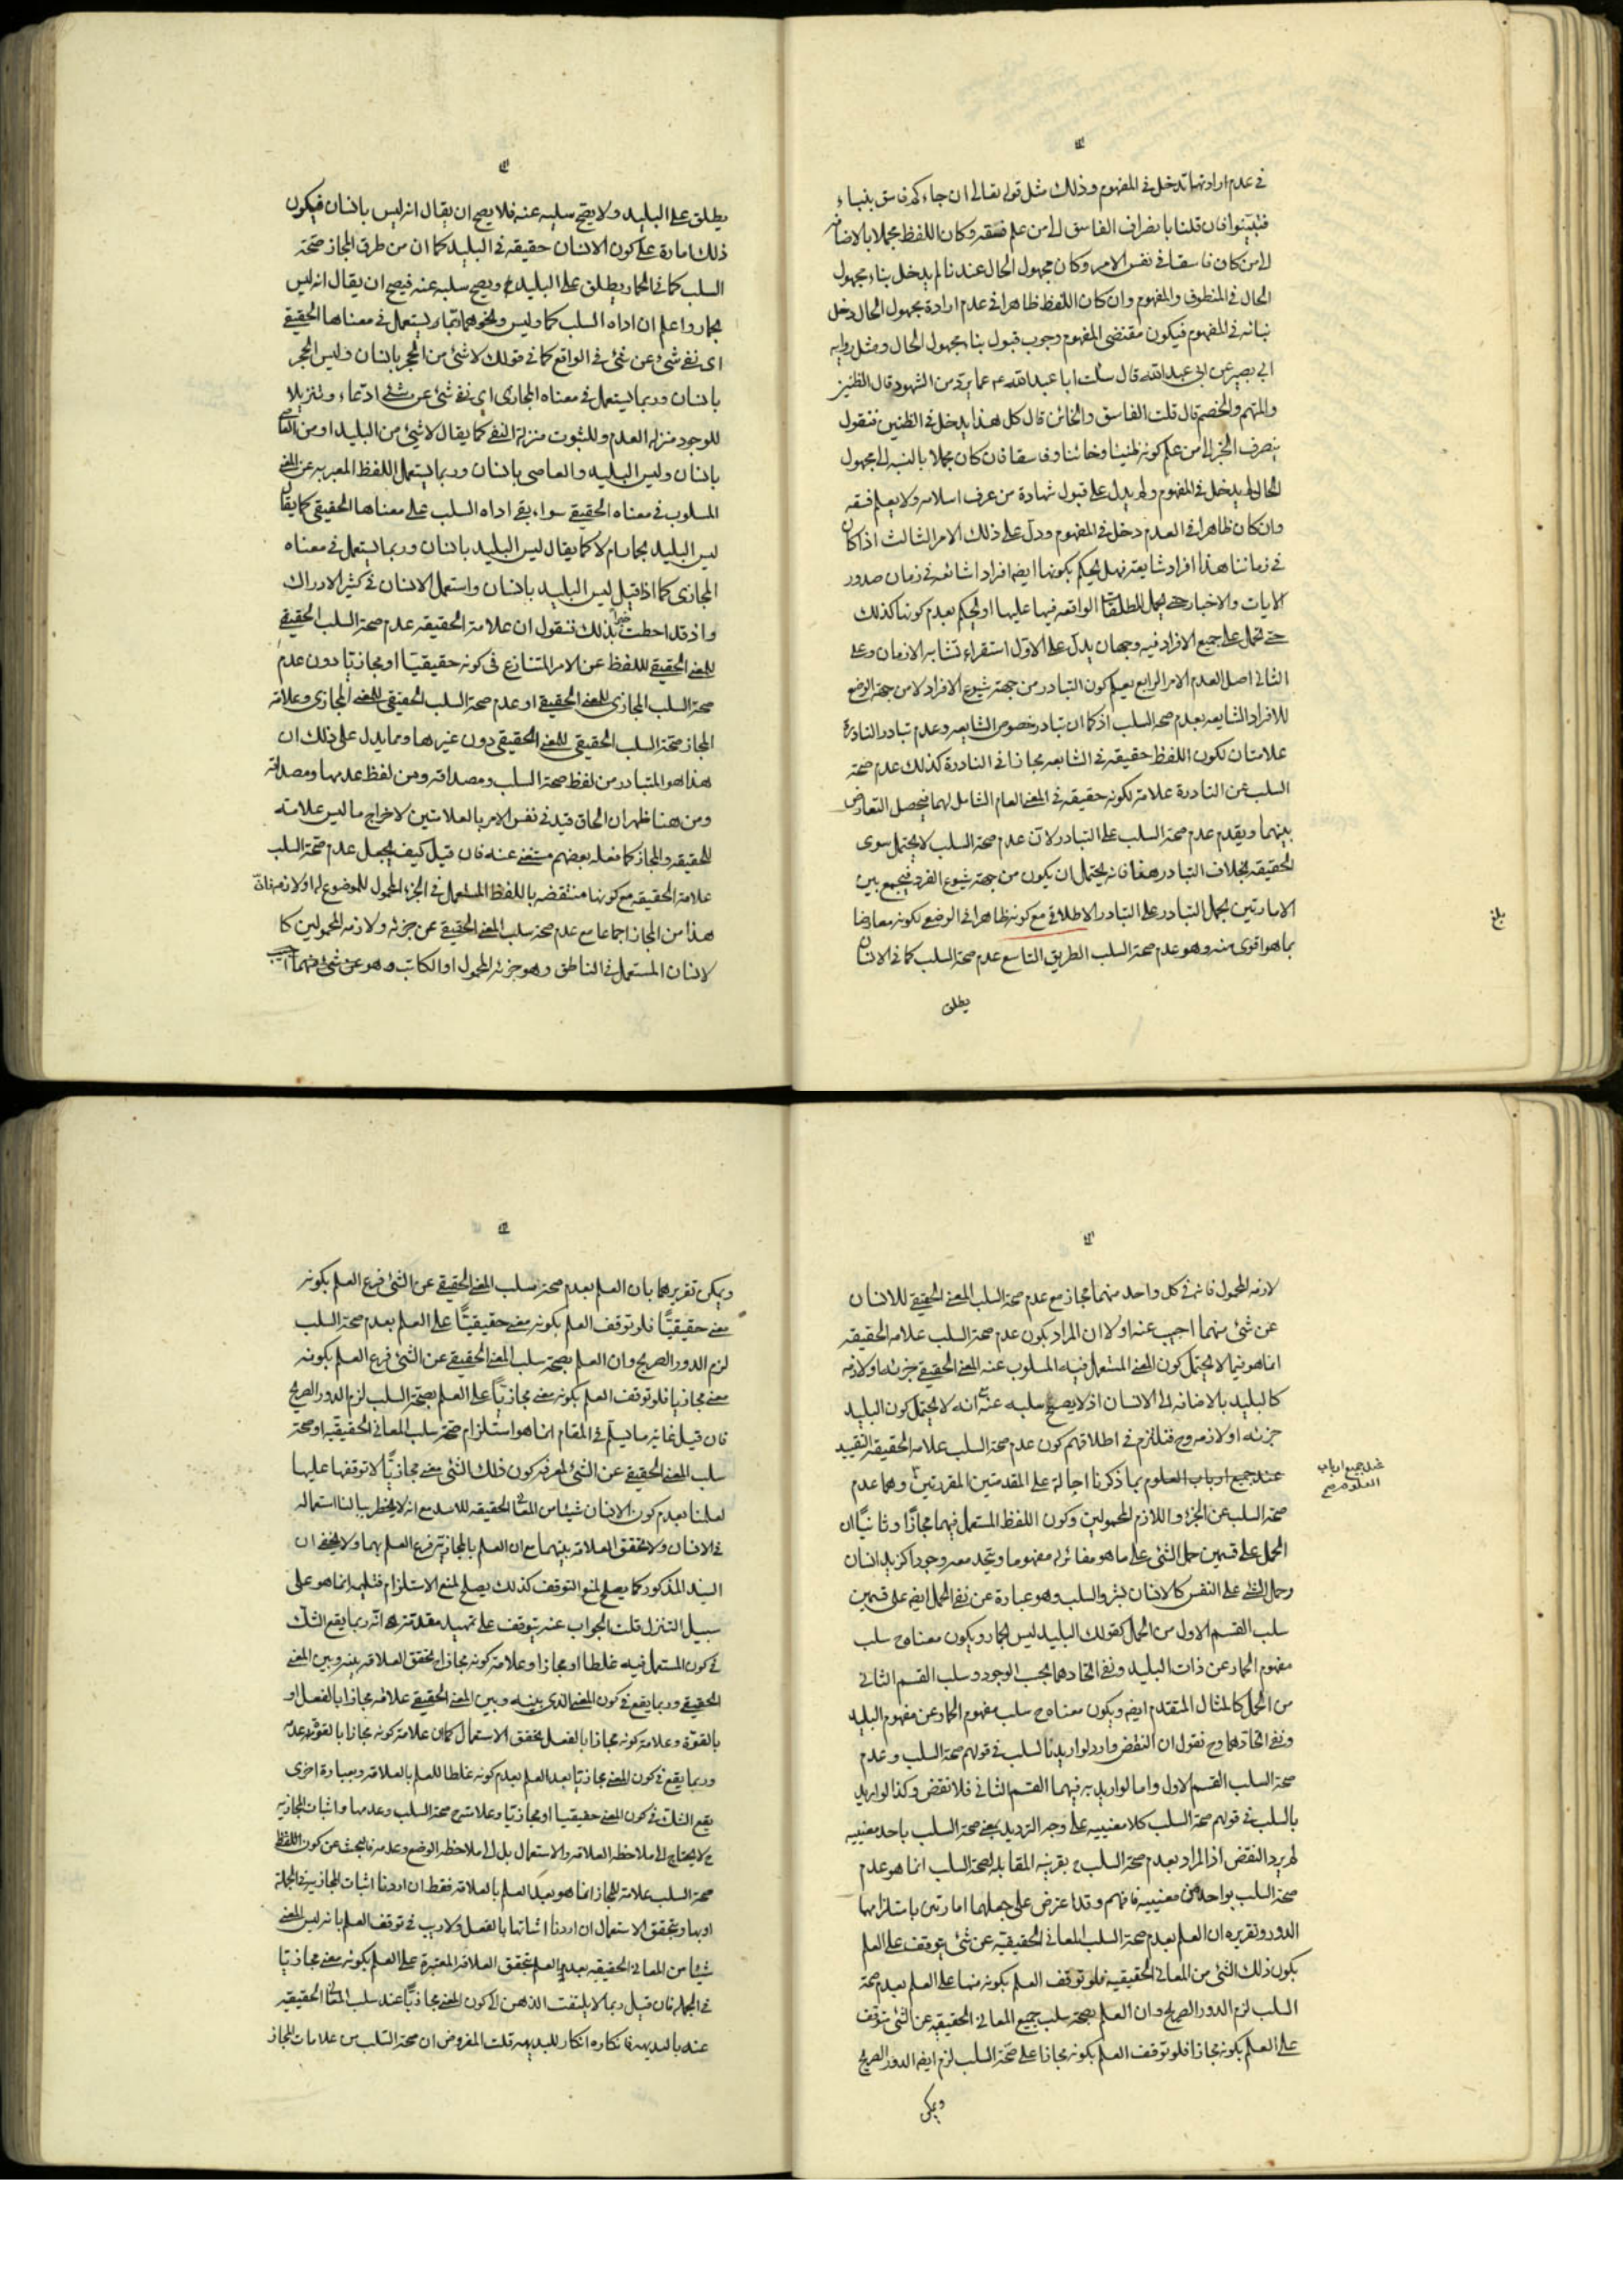 في عدم ارادتها تدخل في المفهوم وذلك مثل قوله تعالى ان جاءكم فاسق بنباء
فتبينوا فان قلنا بانصراف الفاسق الى من علم فسقه وكان اللفظ مجملا بالاضافة
الى من كان فاسقا في نفس الامر وكان مجهول الحال عندنا لم يدخل بناء مجهول
الحال في المنطوق والمفهوم وان كان اللفظ ظاهرا في عدم ارادة مجهول الحال دخل
نبائه في المفهوم فيكون مقتضى المفهوم وجوب قبول بناء مجهول الحال ومثل رواية
ابي بصير عن ابي عبدالله قال سئلت ابا عبدالله ع عما يرد من الشهود قال الظنين
والمتهم والخصم قال قلت الفاسق والخائن قال كل هذا يدخل في الظنين فنقول
ينصرف الخبر الى من علم كونه ظنينا وخائنا وفاسقا فان كان مجملا بالنسبة الى مجهول
الحال لم يدخل في المفهوم ولم يدل على قبول شهادة من عرف اسلامه ولا يعلم فسقه
وان كان ظاهرا في العدم دخل في المفهوم ودل على ذلك الامر الثالث اذا كان
في زماننا هذا افراد شايعة فهل يحكم بكونها ايضا افرادا شائعة في زمان صدور
الايات والاخبار حتى يحمل المطلقات الواقعه فيها عليها او يحكم بعدم كونها كذلك
حتى تحمل على جميع الافراد فيه وجهان يدل على الاول استقراء تشابه الازمان وعلى
الثاني اصل العدم الامر الرابع يعلم كون التبادر من جهة شيوع الافراد لا من جهة الوضع
للافراد الشايعه بعدم صحة السلب اذ كما ان تبادر خصوص الشايعه وعدم تبادر النادرة
علامتان لكون اللفظ حقيقه في الشايعه مجازا في النادرة كذلك عدم صحة
السلب عن النادرة علامة لكونه حقيقه في المعنى العام الشامل لهما فيحصل التعارض
بينهما ويقدم عدم صحة السلب على التبادر لان عدم صحة السلب لا يحتمل سوى
الحقيقه بخلاف التبادر هذا فانه يحتمل ان يكون من جهة شيوع الفرد فيجمع بين
الامارتين بحمل التبادر على التبادر الاطلاقي مع كونه ظاهرا في الوضع لكونه معارضا
بما هو اقوى منه وهو عدم صحة السلب الطريق التاسع عدم صحة السلب كما في الانسان
يطلق
بلغ
يطلق على البليد ولا يصح سلبه عنه فلا يصح ان يقال انه ليس بانسان فيكون
ذلك امارة على كون الانسان حقيقه في البليد كما ان من طرق المجاز صحة
السلب كما في الحمار يطلق على البليد ويصح سلبه عنه فيصح ان يقال انه ليس
بحمار واعلم ان اداه السلب كما وليس ونحوهما تستعمل في معناها الحقيقي
اي نفي شئ عن شئ في الواقع كما في قولك لا شئ من الحجر بانسان وليس الحجر
بانسان وربما يستعمل في معناه المجازي اي نفي شئ عن شئ ادعاء وتنزيلا
للوجود منزلة العدم وللثبوت منزلة النفي كما يقال لا شئ من البليد او من العاصي
بانسان وليس البليد والعاصي بانسان وربما يستعمل اللفظ المعبر به عن المعنى
المسلوب في معناه الحقيقي سواء بقي اداه السلب على معناها الحقيقي كما يقال
ليس البليد بحمار ام لا كما يقال ليس البليد بانسان وربما يستعمل في معناه
المجازي كما اذا قيل ليس البليد بانسان واستعمل الانسان في كثير الادراك
واذ قد احطت خبرا بذلك فنقول ان علامة الحقيقه عدم صحة السلب الحقيقي
للمعنى الحقيقي للفظ عن الامر المتنازع في كونه حقيقيتا او مجازيا دون عدم
صحة السلب المجازي للمعنى الحقيقي او عدم صحة السلب الحقيقي للمعنى المجازي وعلامة
المجاز صحة السلب الحقيقي للمعنى الحقيقي دون غيرها ومما يدل على ذلك ان
هذا هو المتبادر من لفظ صحة السلب ومصداقه ومن لفظ عدمها ومصداقه
ومن هنا ظهر ان الحاق قيد في نفس الامر بالعلامتين لاخراج ما ليس علامته
للحقيقه والمجاز كما فعله بعضهم مستغنى عنه فان قيل كيف يجعل عدم صحة السلب
علامة الحقيقه مع كونها منتقضه باللفظ المستعمل في الجزء المحمول للموضوع له او لازمه فان
هذا من المجاز اجماعا مع عدم صحة سلب المعنى الحقيقي عن جزئه ولازمه المحمولين كا
لانسان المستعمل في الناطق وهو جزئه المحمول او الكاتب وهو
لازمه المحمول فانه في كل واحد منهما مجاز مع عدم صحة السلب المعنى الحقيقي للانسان
عن شئ منهما اجيب عنه اولا ان المراد بكون عدم صحة السلب علامه الحقيقه
انما هو فيما لا يحتمل كون المعنى المستعمل فيه المسلوب عنه المعنى الحقيقي جزئه او لازمه
كالبليد بالاضافه الى الانسان اذ لا يصح سلبه عنه مع انه لا يحتمل كون البليد
جزئه او لازمه وح فنلتزم في اطلاقهم كون عدم صحة السلب علامه الحقيقه التقييد
عند جميع ارباب العلوم بما ذكرنا احالة على المقدمتين المقررتين وهما عدم
صحة السلب عن الجزء واللازم المحمولين وكون اللفظ المستعمل فيهما مجازا وثانيا ان
الحمل على قسمين حمل الشئ على ما هو مغائر له مفهوما ويتحد معه وجودا كزيد انسان
وحمل الشئ على النفس كالانسان بشر والسلب وهو عبارة عن نفي الحمل ايضا على قسمين
سلب القسم الاول من الحمل كقولك البليد ليس بحمار ويكون معناه ح سلب
مفهوم الحمار عن ذات البليد ونفي اتحادهما بحسب الوجود وسلب القسم الثاني
من الحمل كالمثال المتقدم ايضا ويكون معناه ح سلب مفهوم الحمار عن مفهوم البليد
ونفي اتحادهما وح نقول ان النقض وارد لو اريد بالسلب في قولهم صحة السلب وعدم
صحة السلب القسم الاول واما لو اريد به فيهما القسم الثاني فلا نقض وكذا لو اريد
بالسلب في قولهم صحة السلب كلا معنييه على وجه الترديد يعني صحة السلب باحد معنييه
لم يرد النقض اذ المراد بعدم صحة السلب ح بقرينة المقابلة لصحة السلب انما هو عدم
صحة السلب بواحد من معنييه فافهم وقد اعترض على جعلهما امارتين باستلزامهما
الدور وتقريره ان العلم بعدم صحة السلب المعاني الحقيقيه عن شئ يتوقف على العلم
بكون ذلك الشئ من المعاني الحقيقيه فلو توقف العلم بكونه منها على العلم بعدم صحة
السلب لزم الدور الصريح وان العلم بصحة سلب جميع المعاني الحقيقيه عن الشئ يتوقف
على العلم بكونه مجازا فلو توقف العلم بكونه مجازا على صحة السلب لزم ايضا الدور الصريح
ويمكن
عند جميع ارباب
العلوم
ويمكن تقريرهما بان العلم بعدم صحة سلب المعنى الحقيقي عن الشئ فرع العلم بكونه
معنى حقيقيا فلو توقف العلم بكونه معنى حقيقيا على العلم بعدم صحة السلب
لزم الدور الصريح وان العلم بصحة سلب المعنى الحقيقي عن الشئ فرع العلم بكونه
معنى مجازيا فلو توقف العلم بكونه معنى مجازيا على العلم بصحة السلب لزم الدور الصريح
فان قيل غاية ما يسلم في المقام انما هو استلزام صحة سلب المعاني الحقيقيه او صحة
سلب المعنى الحقيقي عن الشئ لمعرفة كون ذلك الشئ معنى مجازيا لا توقفها عليها
لعلمنا بعدم كون الانسان شيئا من المعاني الحقيقه للاسد مع انه لا يخطر ببالنا استعماله
في الانسان ولا تحقق العلاقه بينهما مع ان العلم بالمجازية فرع العلم بهما ولا يخفى ان
السند المذكور كما يصلح لمنع التوقف كذلك يصلح لمنع الاستلزام فتسليمه انما هو على
سبيل التنزل قلت الجواب عنه يتوقف على تمهيد مقدمة هي انه ربما يقع الشك
في كون المستعمل فيه غلطا او مجازا وعلامة كونه مجازا ح تحقق العلاقه بينه وبين المعنى
الحقيقي وربما يقع في كون المعنى الذي بينه وبين المعنى الحقيقي علاقه مجازا بالفعل او
بالقوة وعلامة كونه مجازا بالفعل تحقق الاستعمال كما ان علامة كونه مجازا بالقوة عدمه
وربما يقع في كون المعنى مجازيا بعد العلم بعدم كونه غلطا للعلم بالعلاقه وبعبارة اخرى
يقع الشك في كون المعنى حقيقيا او مجازيا وعلامته ح صحة السلب وعدمها واثبات المجازية
ح لا يحتاج الى ملاحظه العلاقه والاستعمال بل الى ملاحظه الوضع وعدمه فالبحث عن كون اللفظ
صحة السلب علامة للمجاز انما هو بعد العلم بالعلاقه فقط ان اردنا اثبات المجازية في الجملة
او بها وبتحقق الاستعمال ان اردنا اثباتها بالفعل ولا ريب في توقف العلم بانه ليس المعنى
شيئا من المعاني الحقيقيه بعد العلم بتحقق العلاقه المعتبرة على العلم بكونه معنى مجازيا
في الجمله فان قيل ربما لا يلتفت الذهن الى كون المعنى مجازيا عند سلب المعاني الحقيقيه
عنه بالبديهه فانكاره انكار للبديهه قلت المفروض ان صحة السلب من علامات المجاز